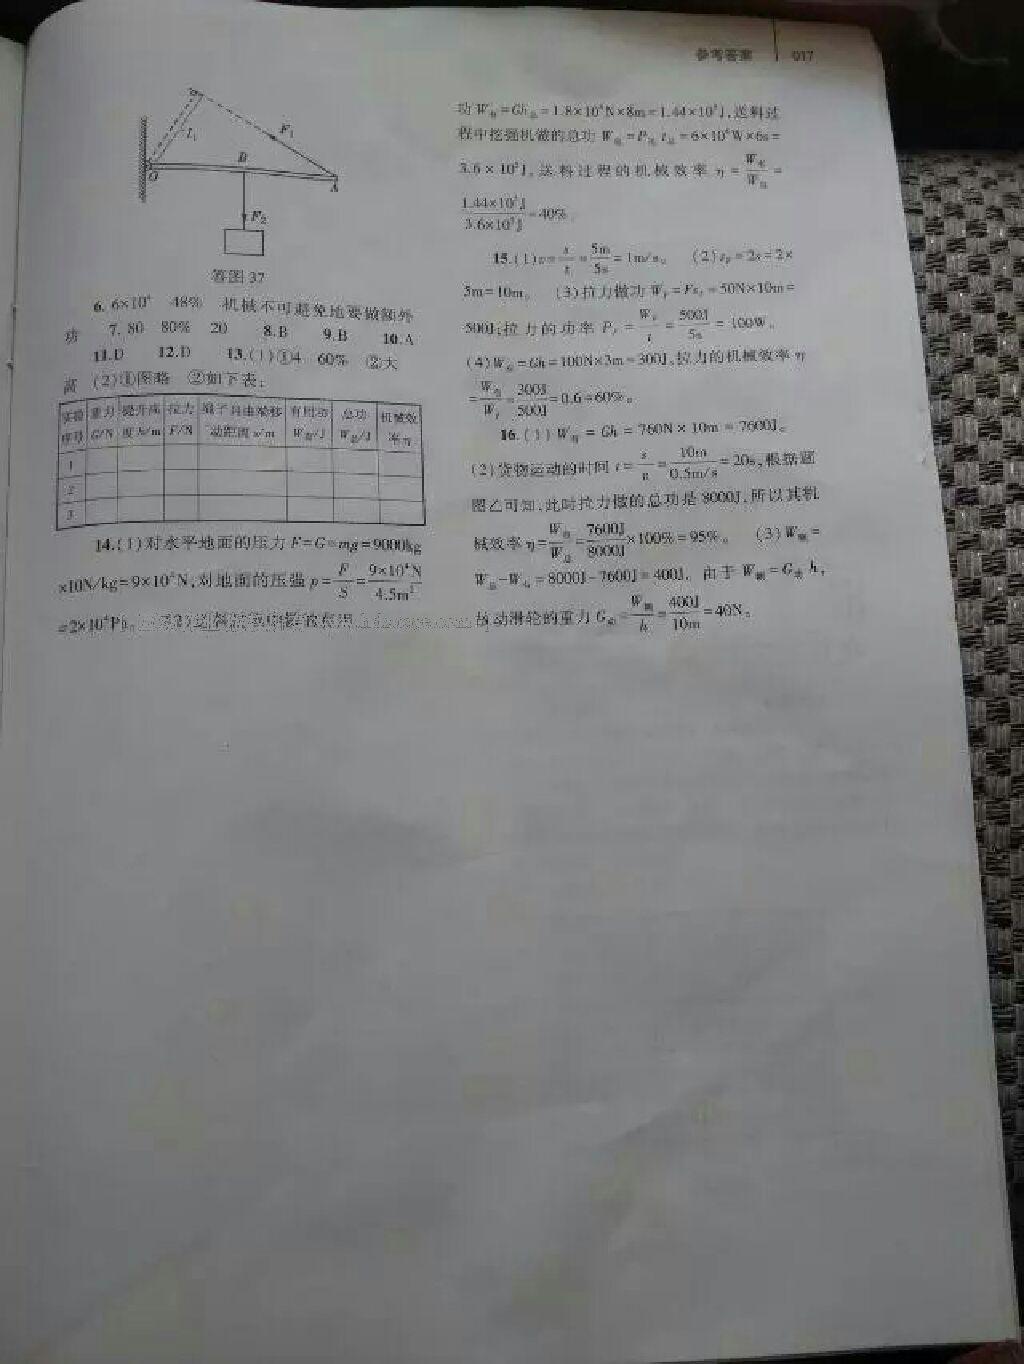 参考答案 017
l₁
F₁
O B A
F₂
答图 37
6. 6×10⁴ 48% 机械不可避免地要做额外
功 7. 80 80% 20 8. B 9. B 10. A
11. D 12. D 13. (1)①4 60% ②大
高 (2)①图略 ②如下表:
实验 重力 提升高 拉力 绳子自由端移 有用功 总功 机械效
序号 G/N 度h/m F/N 动距离s/m W有/J W总/J 率η
1
2
3
14. (1)对水平地面的压力 F=G=mg=9000kg
×10N/kg=9×10⁴N,对地面的压强 p=F/S=9×10⁴N/4.5m²
=2×10⁴Pa。
功 W有=Gh=1.8×10⁴N×8m=1.44×10⁵J,送料过
程中挖掘机做的总功 W总=Pt=6×10⁴W×6s=
3.6×10⁵J, 送料过程的机械效率 η=W有/W总=
1.44×10⁵J/3.6×10⁵J=40%
15. (1)v=s/t=5m/5s=1m/s。 (2)sF=2s=2×
5m=10m。 (3)拉力做功 WF=FsF=50N×10m=
500J;拉力的功率 PF=WF/t=500J/5s=100W。
(4)W有=Gh=100N×3m=300J,拉力的机械效率 η
=W有/WF=300J/500J=0.6=60%。
16. (1) W有=Gh=760N×10m=7600J。
(2)货物运动的时间 t=s/v=10m/0.5m/s=20s,根据题
图乙可知,此时拉力做的总功是8000J,所以其机
械效率 η=W有/W总=7600J/8000J×100%=95%。 (3)W额=
W总-W有=8000J-7600J=400J, 由于 W额=G动h,
故动滑轮的重力 G动=W额/h=400J/10m=40N。